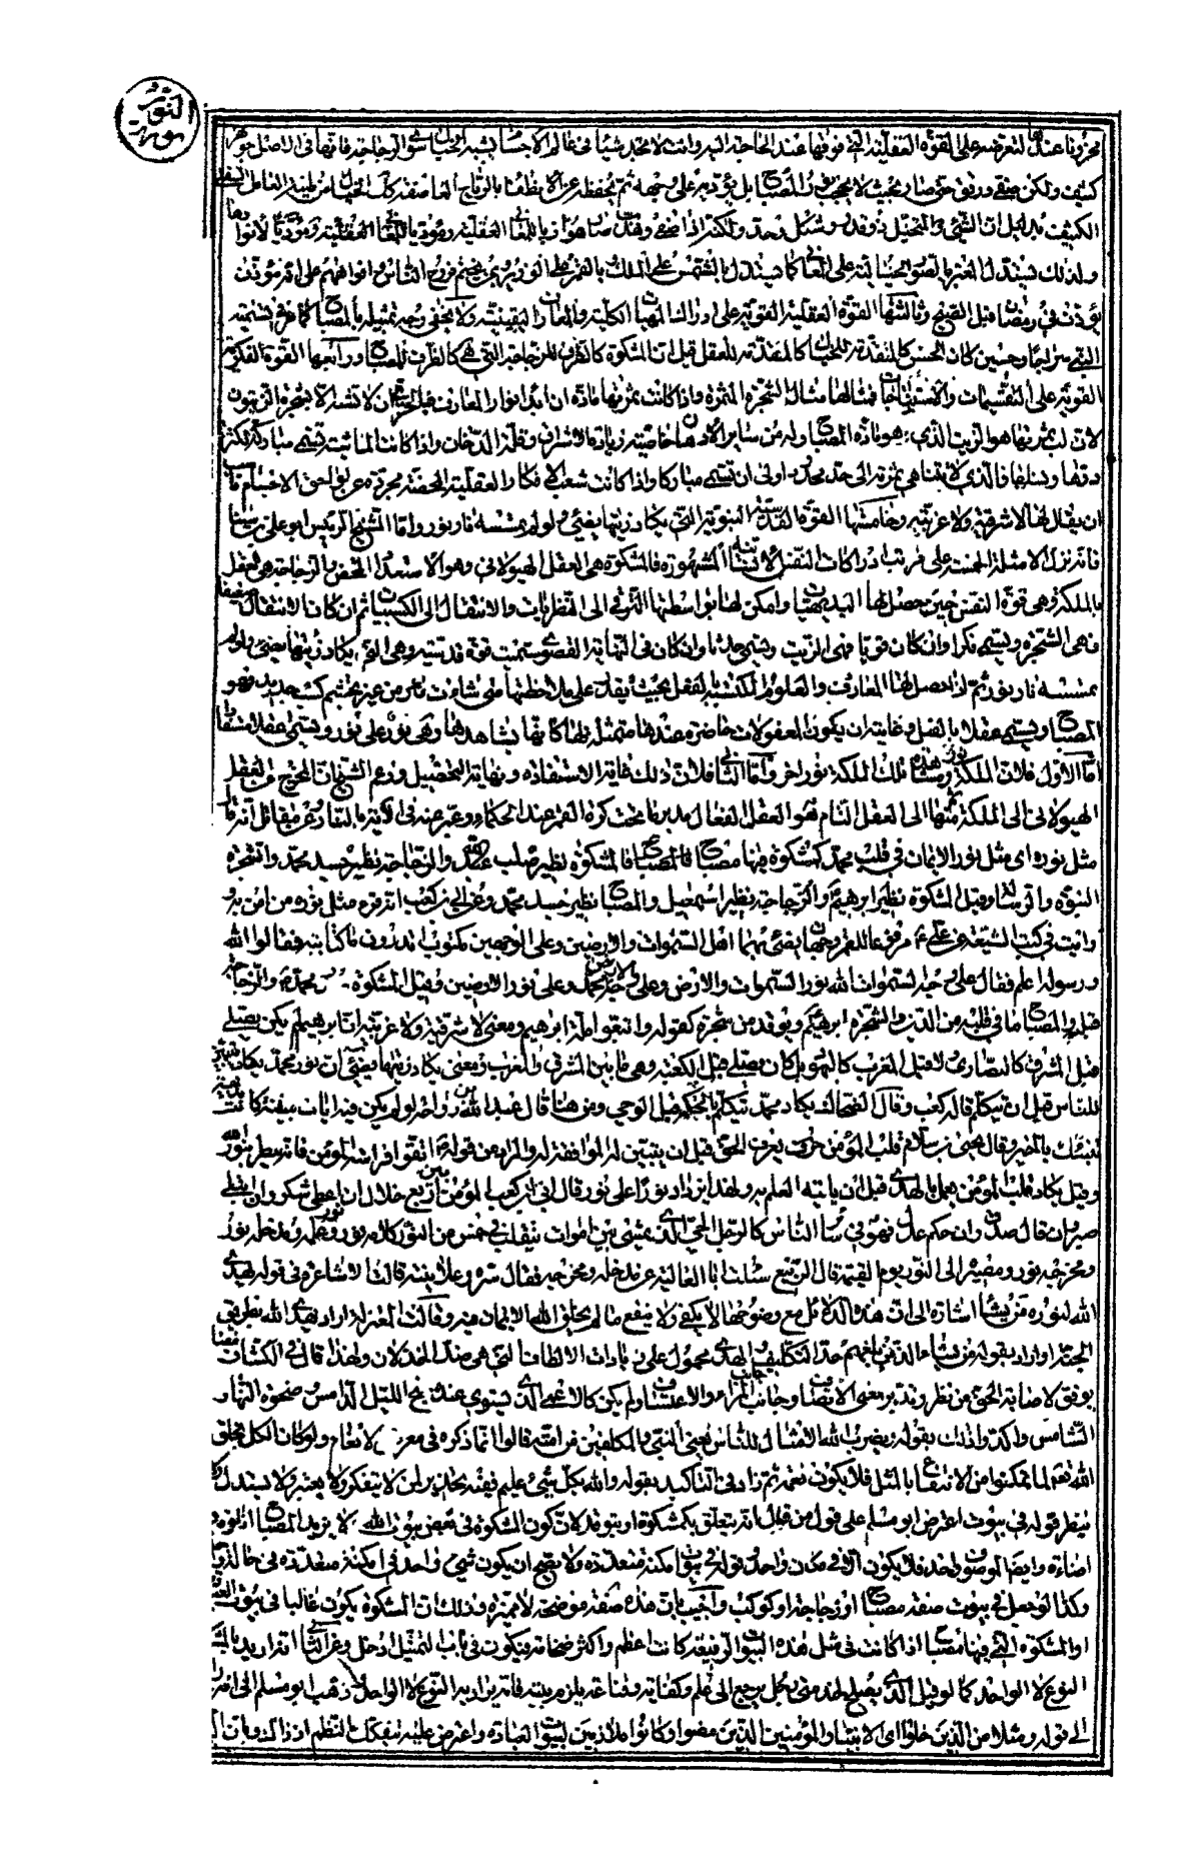 النور
مخزونا عندها لتعرضه على القوة العقلية التي فوقها عند الحاجة اليه وانت لا تجد شيئا في عالم الاجسام يشبه الخيال سوى الزجاجة فانها في الاصل جوهر
كثيف ولكن صفى ورقق حتى صار بحيث لا يحجب نور المصباح بل يؤديه على وجهه ثم يحفظه عن الانطفاء بالرياح العاصفة كذلك الخيال من طينة العالم السفلي
الكثيف بدليل ان الشيء المتخيل ذو قدر وشكل وحد ولكنه اذا صفى ورقق صار موازيا للمعاني العقلية ومؤديا لانوارها
ولذلك يستدل المعبر بالصور الخيالية على المعاني كما يستدل بالشمس على الملك وبالقمر على الوزير وبمن يختم فروج الناس وافواههم على انه مؤذن
يؤذن في رمضان قبل الصبح وثالثها القوة العقلية القوية على ادراك الماهيات الكلية والمعارف اليقينية ولا يخفى وجه تمثيله بالمصباح كما عرف في تسمية
النبي سراجا وحين كان الحس كالمقدمة للخيال كالمقدمة للعقل قيل ان المشكوة كالظرف للزجاجة التي هي كالظرف للمصباح ورابعها القوة الفكرية
القوية على التقسيمات والاستنتاجات فمثالها مثال الشجرة المثمرة واذا كانت ثمرتها مادة تزايد انوار المعارف فبالحرى ان لا تشبه الا بشجرة الزيتون
لان لب ثمرتها هو الزيت الذي هو مادة المصباح وله من سائر الادهان خاصية زيادة الاشراق وقلة الدخان واذا كانت الماشية تسمى مباركة لكثرة
درها ونسلها فالذي لا يتناهى ثمرته الى حد محدود اولى ان تسمى مباركا واذا كانت شعب الافكار العقلية المحضة مجردة عن لواحق الاجسام فناسب
ان يقال لها لا شرقية ولا غربية وخامسها القوة القدسية النبوية التي يكاد زيتها يضيء ولو لم تمسسه نار نور واما الشيخ الرئيس ابو علي بن سينا
فانه نزل الامثلة الخمسة على مراتب ادراكات النفس الانسانية المشهورة فالمشكوة هي العقل الهيولاني وهو الاستعداد المحض والزجاجة هي العقل
بالملكة وهي قوة النفس حين حصل لها البديهيات وامكن لها بواسطتها الترقي الى النظريات والانتقال الى الكسبيات ثم ان كان الانتقال ضعيفا
فهي الشجرة ويسمى فكرا وان كان قويا فهي الزيت ويسمى حدسا وان كان في النهاية القصوى سميت قوة قدسية وهي التي يكاد زيتها يضيء ولو لم
تمسسه نار نور ثم اذا حصل لها المعارف والعلوم المكتسبة بالفعل بحيث يقدر على ملاحظتها متى شاءت من غير تجشم كسب جديد فهو
المصباح ويسمى عقلا بالفعل وغايته ان يكون المعقولات حاضرة عندها متمثلة لها كانها تشاهدها وهي نور على نور ويسمى عقلا مستفادا
اما الاول فلان الملكة نور ومشاهدة تلك الملكة نور اخر واما الثاني فلان ذلك غاية الاستفادة ونهاية التحصيل وزعم الشيخ ان المخرج من العقل
الهيولاني الى الملكة ومنها الى العقل التام هو العقل الفعال مدبر ما تحت كرة القمر عند الحكماء وعبر عنه في الاية بالنار وعن مقاتل انه قال
مثل نوره اي مثل نور الايمان في قلب محمد كمشكوة فيها مصباح فالمشكوة نظير صلب عبد الله والزجاجة نظير جسد محمد والشجرة
النبوة والرسالة وقيل المشكوة نظير ابرهيم والزجاجة نظير اسمعيل والمصباح نظير جسد محمد وعن ابي بن كعب انه قرء مثل نور من امن به
ورايت في كتب الشيعة عن علي مرفوعا للقمر وجهان يضيء بهما اهل السموات والارضين وعلى الوجهين مكتوب اتدرون ما كتابته فقالوا الله
ورسوله اعلم فقال على وجه السموات الله نور السموات والارض وعلى وجه الارض محمد وعلي نور الارضين وقيل المشكوة محمد والزجاجة
قلبه والمصباح ما في قلبه من الدين والشجرة ابرهيم ويوقد من شجرة كقوله واتبعوا ملة ابرهيم ومعنى لا شرقية ولا غربية ان ابرهيم لم يكن يصلي
قبل المشرق كالنصارى ولا قبل المغرب كاليهود بل كان يصلي قبل الكعبة وهي ما بين المشرق والمغرب ومعنى يكاد زيتها يضيء ان نور محمد يكاد يتبين
للناس قبل ان يتكلم قاله كعب وقال الضحاك يكاد محمد يتكلم بالحكمة قبل الوحي ومن هنا قال عبد الله بن رواحة لو لم يكن فيه ايات مبينة كانت بديهته
تنبئك بالخبر وقال يحيى بن سلام قلب المؤمن يعرف الحق قبل ان يتبين له لموافقته له والمراد من قوله اتقوا فراسة المؤمن فانه ينظر بنور الله
وقيل يكاد قلب المؤمن يعمل بالهدى قبل ان ياتيه العلم به ولهذا يزداد نورا على نور قال ابي بن كعب المؤمن بين اربع خلال ان اعطي شكر وان ابتلي
صبر وان قال صدق وان حكم عدل فهو في سائر الناس كالرجل الحي الذي يمشي بين الاموات يتقلب في خمس من النور كلامه نور وعمله نور ومدخله نور
ومخرجه نور ومصيره الى النور يوم القيمة قال الربيع سئلت ابا العالية عن مدخله ومخرجه فقال سره وعلانيته قالت الاشاعرة في قوله يهدي
الله لنوره من يشاء اشارة الى ان هذه الدلائل مع وضوحها لا يكفي ولا ينفع ما لم يخلق الله الايمان فيه وقالت المعتزلة اراد يهدي الله بطريق
الجنة او اراد بقوله من يشاء الذين بلغهم حد التكليف والهدى محمول على زيادات الالطاف التي هي ضد الخذلان ولهذا قال في الكشاف
يوفق لاصابة الحق من نظر وتدبر بعين الانصاف وجانب المراء والاعتساف ولم يكن كالاعمى الذي يستوي عنده جنح الليل الدامس وضحوة النهار
الشامس واكد ذلك بقوله ويضرب الله الامثال للناس يعني النبي والمكلفين من امته قالوا انما ذكره في معرض الانعام ولو كان الكل بخلق
الله تعالى لما تمكنوا من الانتفاع بالمثل فلا يكون نعمة ثم زاد في التاكيد بقوله والله بكل شيء عليم ففيه بحث لمن لا يتفكر ولا يعتبر ولا يستدل
ينظر قوله في بيوت اعترض ابو مسلم على قول من قال انه يتعلق بكمشكوة او بتوقد لان كون المشكوة في بعض بيوت الله لا يزيد المصباح انارة و
اضاءة وايضا الموصوف واحد فلا يكون الا في مكان واحد وقوله في بيوت امكنة متعددة ولا يصح ان يكون شيء واحد في امكنة متعددة في حالة
وكذا لو جعل في بيوت صفة مصباح او زجاجة او كوكب واجيب بان هذه صفة موضحة لا مميزة وذلك ان المشكوة يكون غالبا في بيوت الله
او المشكوة التي فيها مصباح اذا كانت في مثل هذه البيوت الرفيعة كانت اعظم واكثر ضخامة فيكون في باب التمثيل ادخل وعن الثاني انه اريد بالمشكوة
النوع لا الواحد كما لو قيل الذي يصلح لخدمتي رجل يرجع الى علم وكفاية وقناعة يلزم بيته فانه يراد به النوع لا الواحد وذهب ابو مسلم الى انه راجع
الى قوله ومثلا من الذين خلوا اي الانبياء والمؤمنين الذين مضوا وكانوا ملازمين لبيوت العبادة واعترض عليه بتفكك النظم اذا ذاك وبان